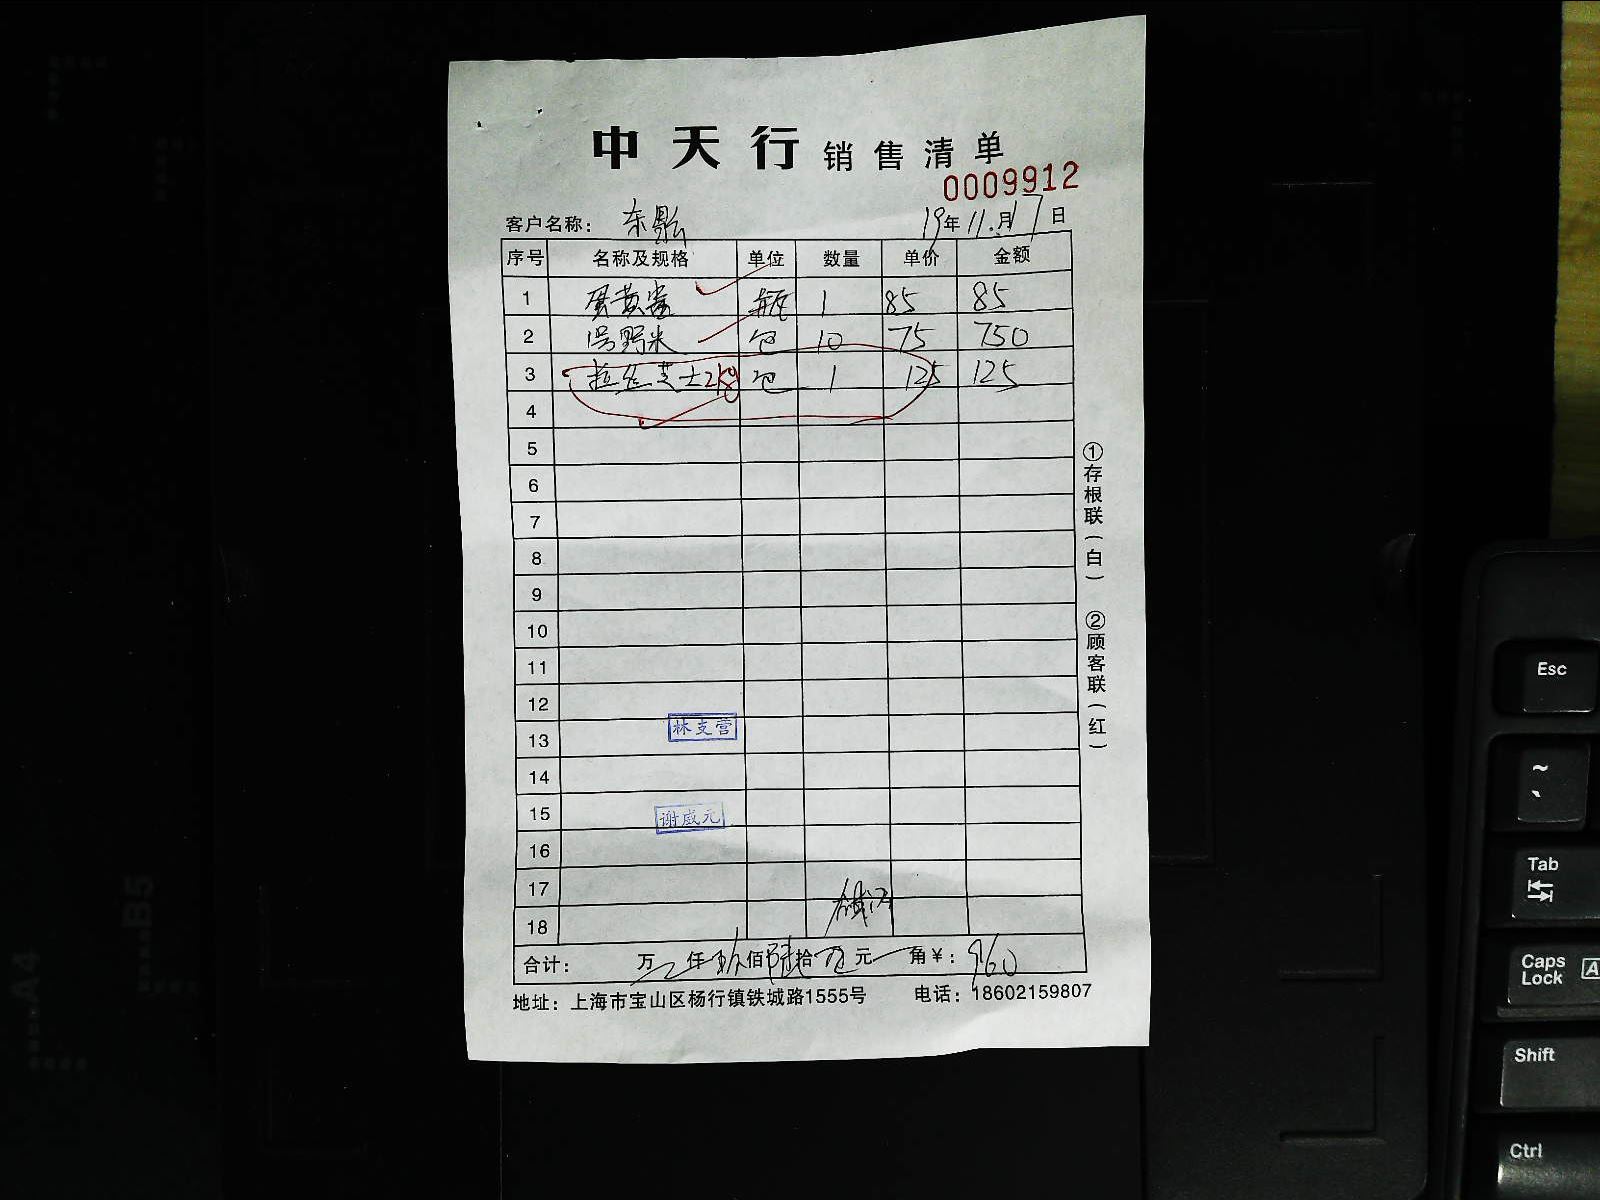 中天行 销售清单
0009912
客户名称: 东 19年11月17日
序号 名称及规格 单位 数量 单价 金额
1 蛋黄酱 瓶 1 85 85
2 野米 包 10 75 750
3 拉丝芝士2kg 包 1 125 125
4
5
6
7
8
9
10
11
12
13 林支营
14
15 谢威元
16
17
18
合计: 万 仟 玖佰陆拾 元 角¥: 960
地址: 上海市宝山区杨行镇铁城路1555号 电话: 18602159807
①存根联(白) ②顾客联(红)
Esc
~
`
Tab
Caps Lock A
Shift
Ctrl
B5
A4